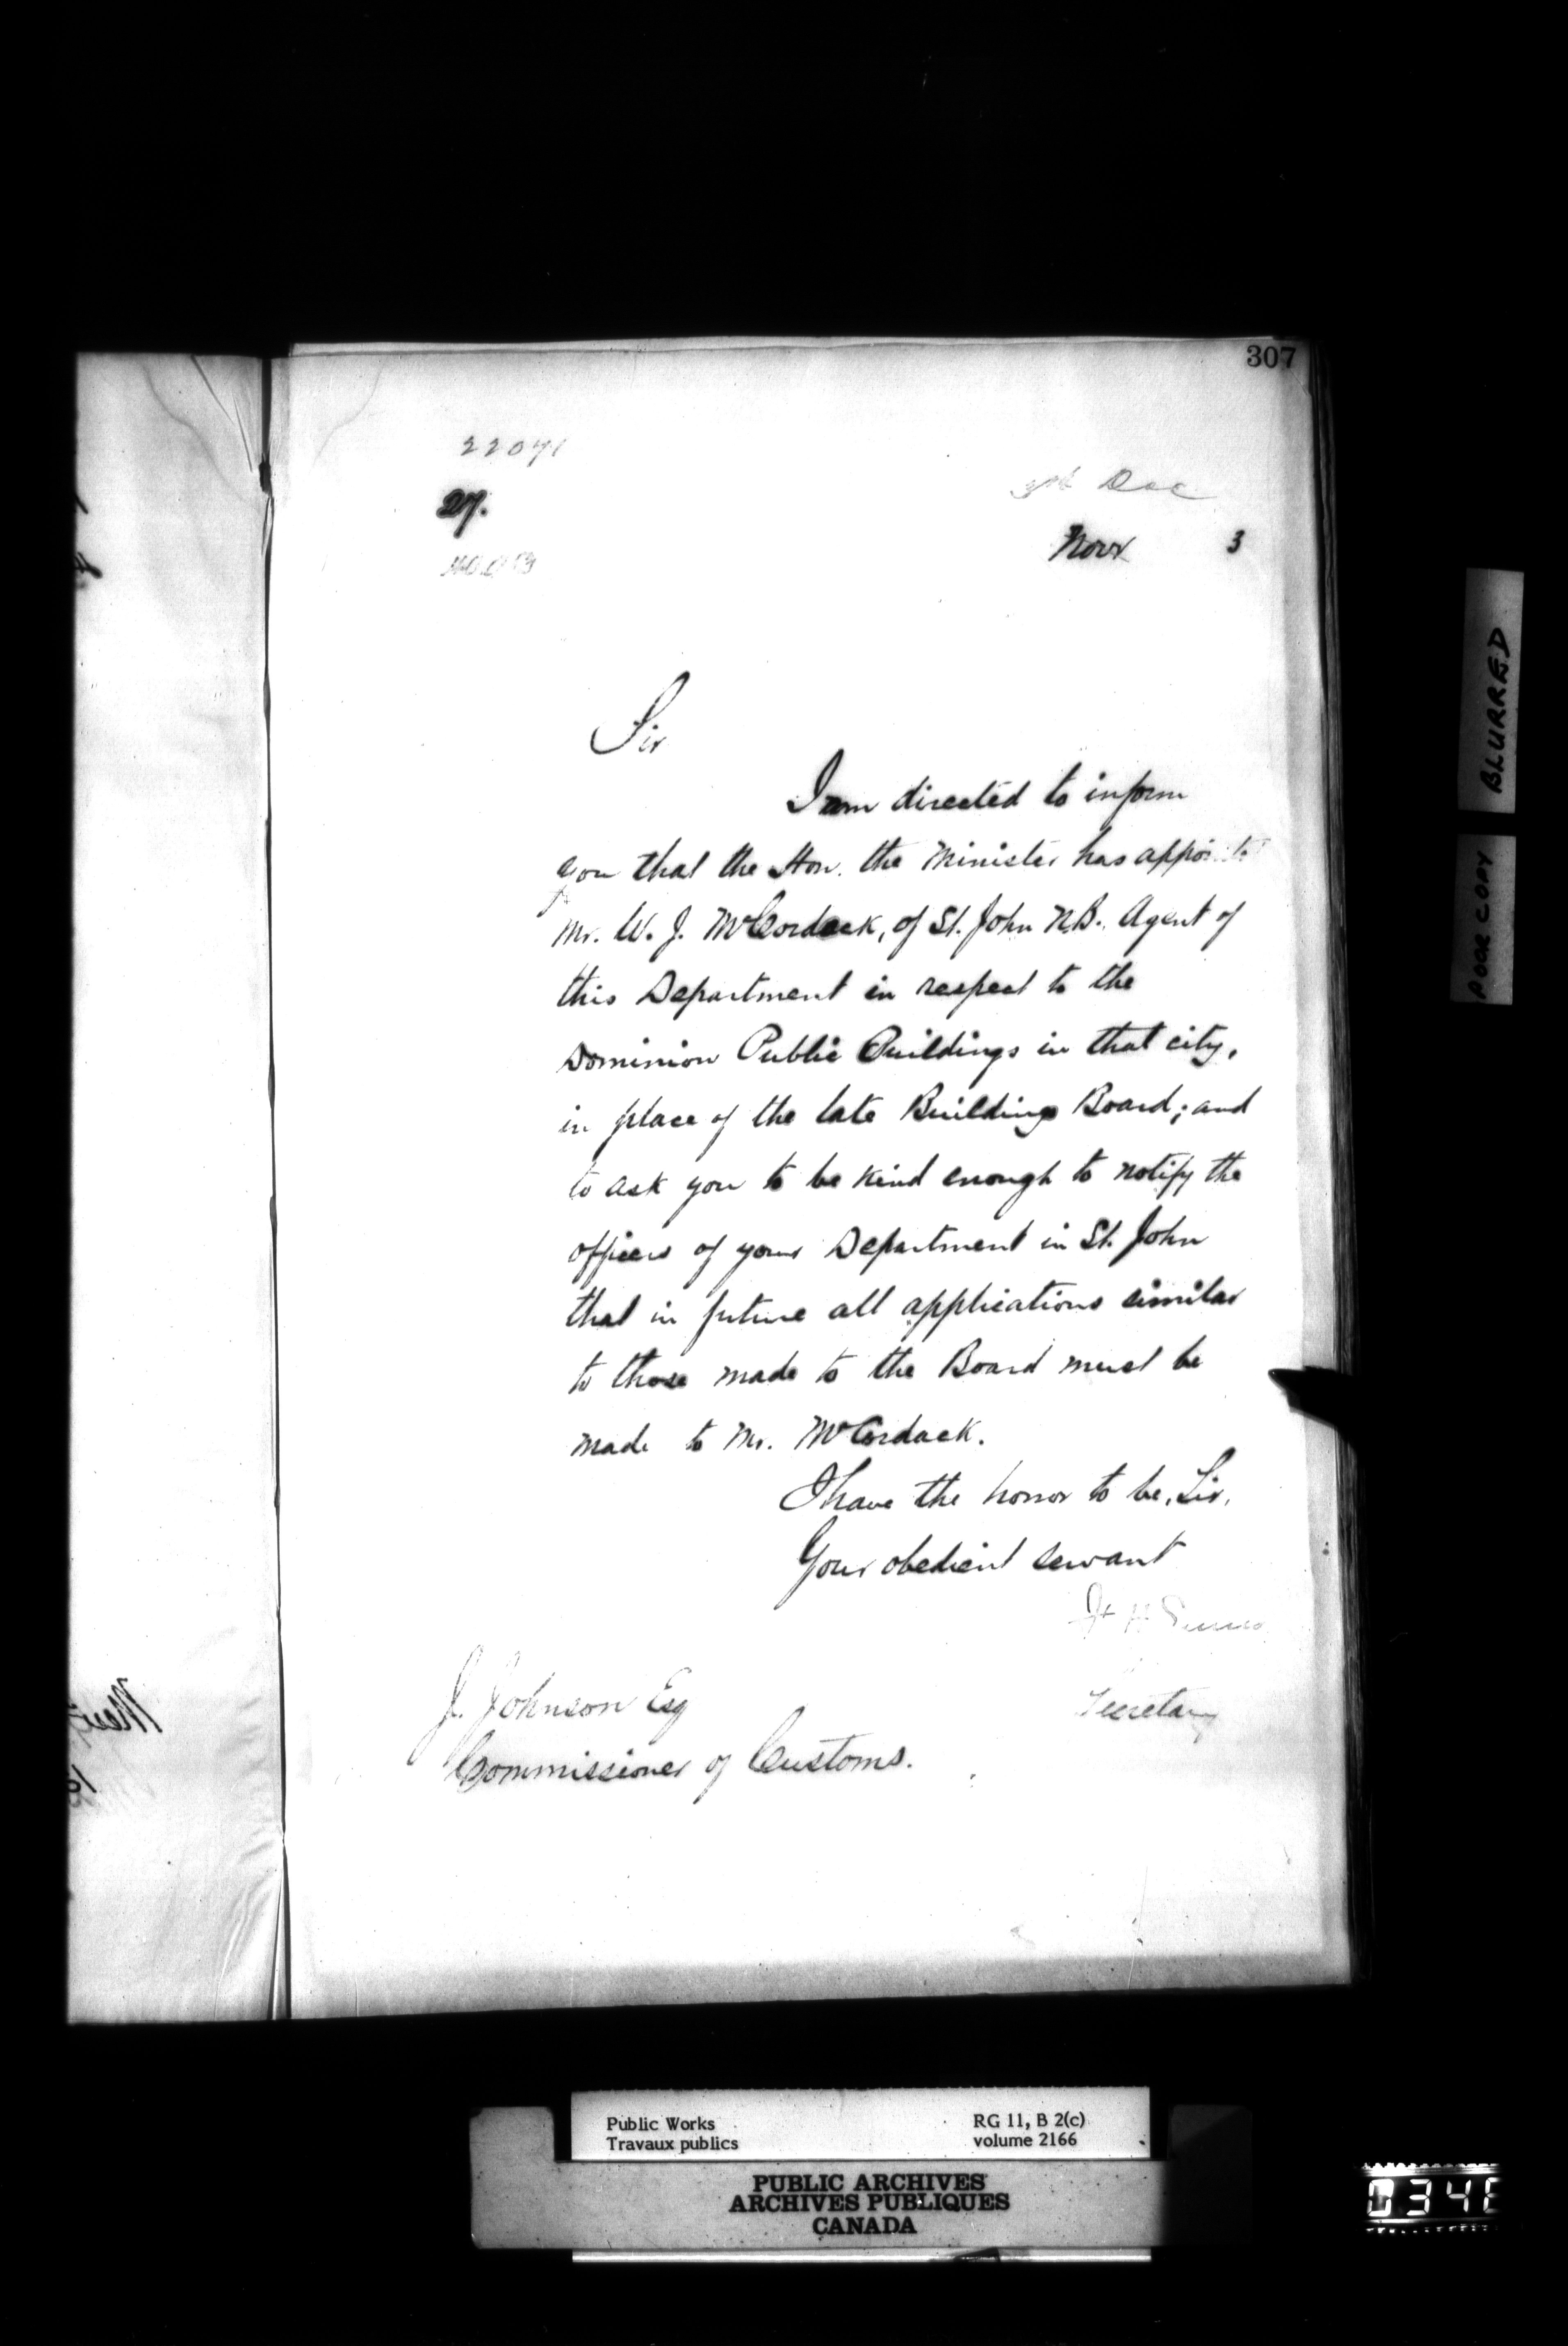 307
22071
27.
3rd Dec
Novr 3
Sir
I am directed to inform
you that the Hon. the Minister has appointed
Mr. W. J. McCordack, of St. John N.B. Agent of
this Department in respect to the
Dominion Public Buildings in that city,
in place of the late Buildings Board; and
to ask you to be kind enough to notify the
officers of your Department in St. John
that in future all applications similar
to those made to the Board must be
made to Mr. McCordack.
I have the honor to be, Sir,
Your obedient servant
Secretary
J. Johnson Esq
Commissioner of Customs.
BLURRED
POOR COPY
Public Works
Travaux publics
RG 11, B 2(c)
volume 2166
PUBLIC ARCHIVES
ARCHIVES PUBLIQUES
CANADA